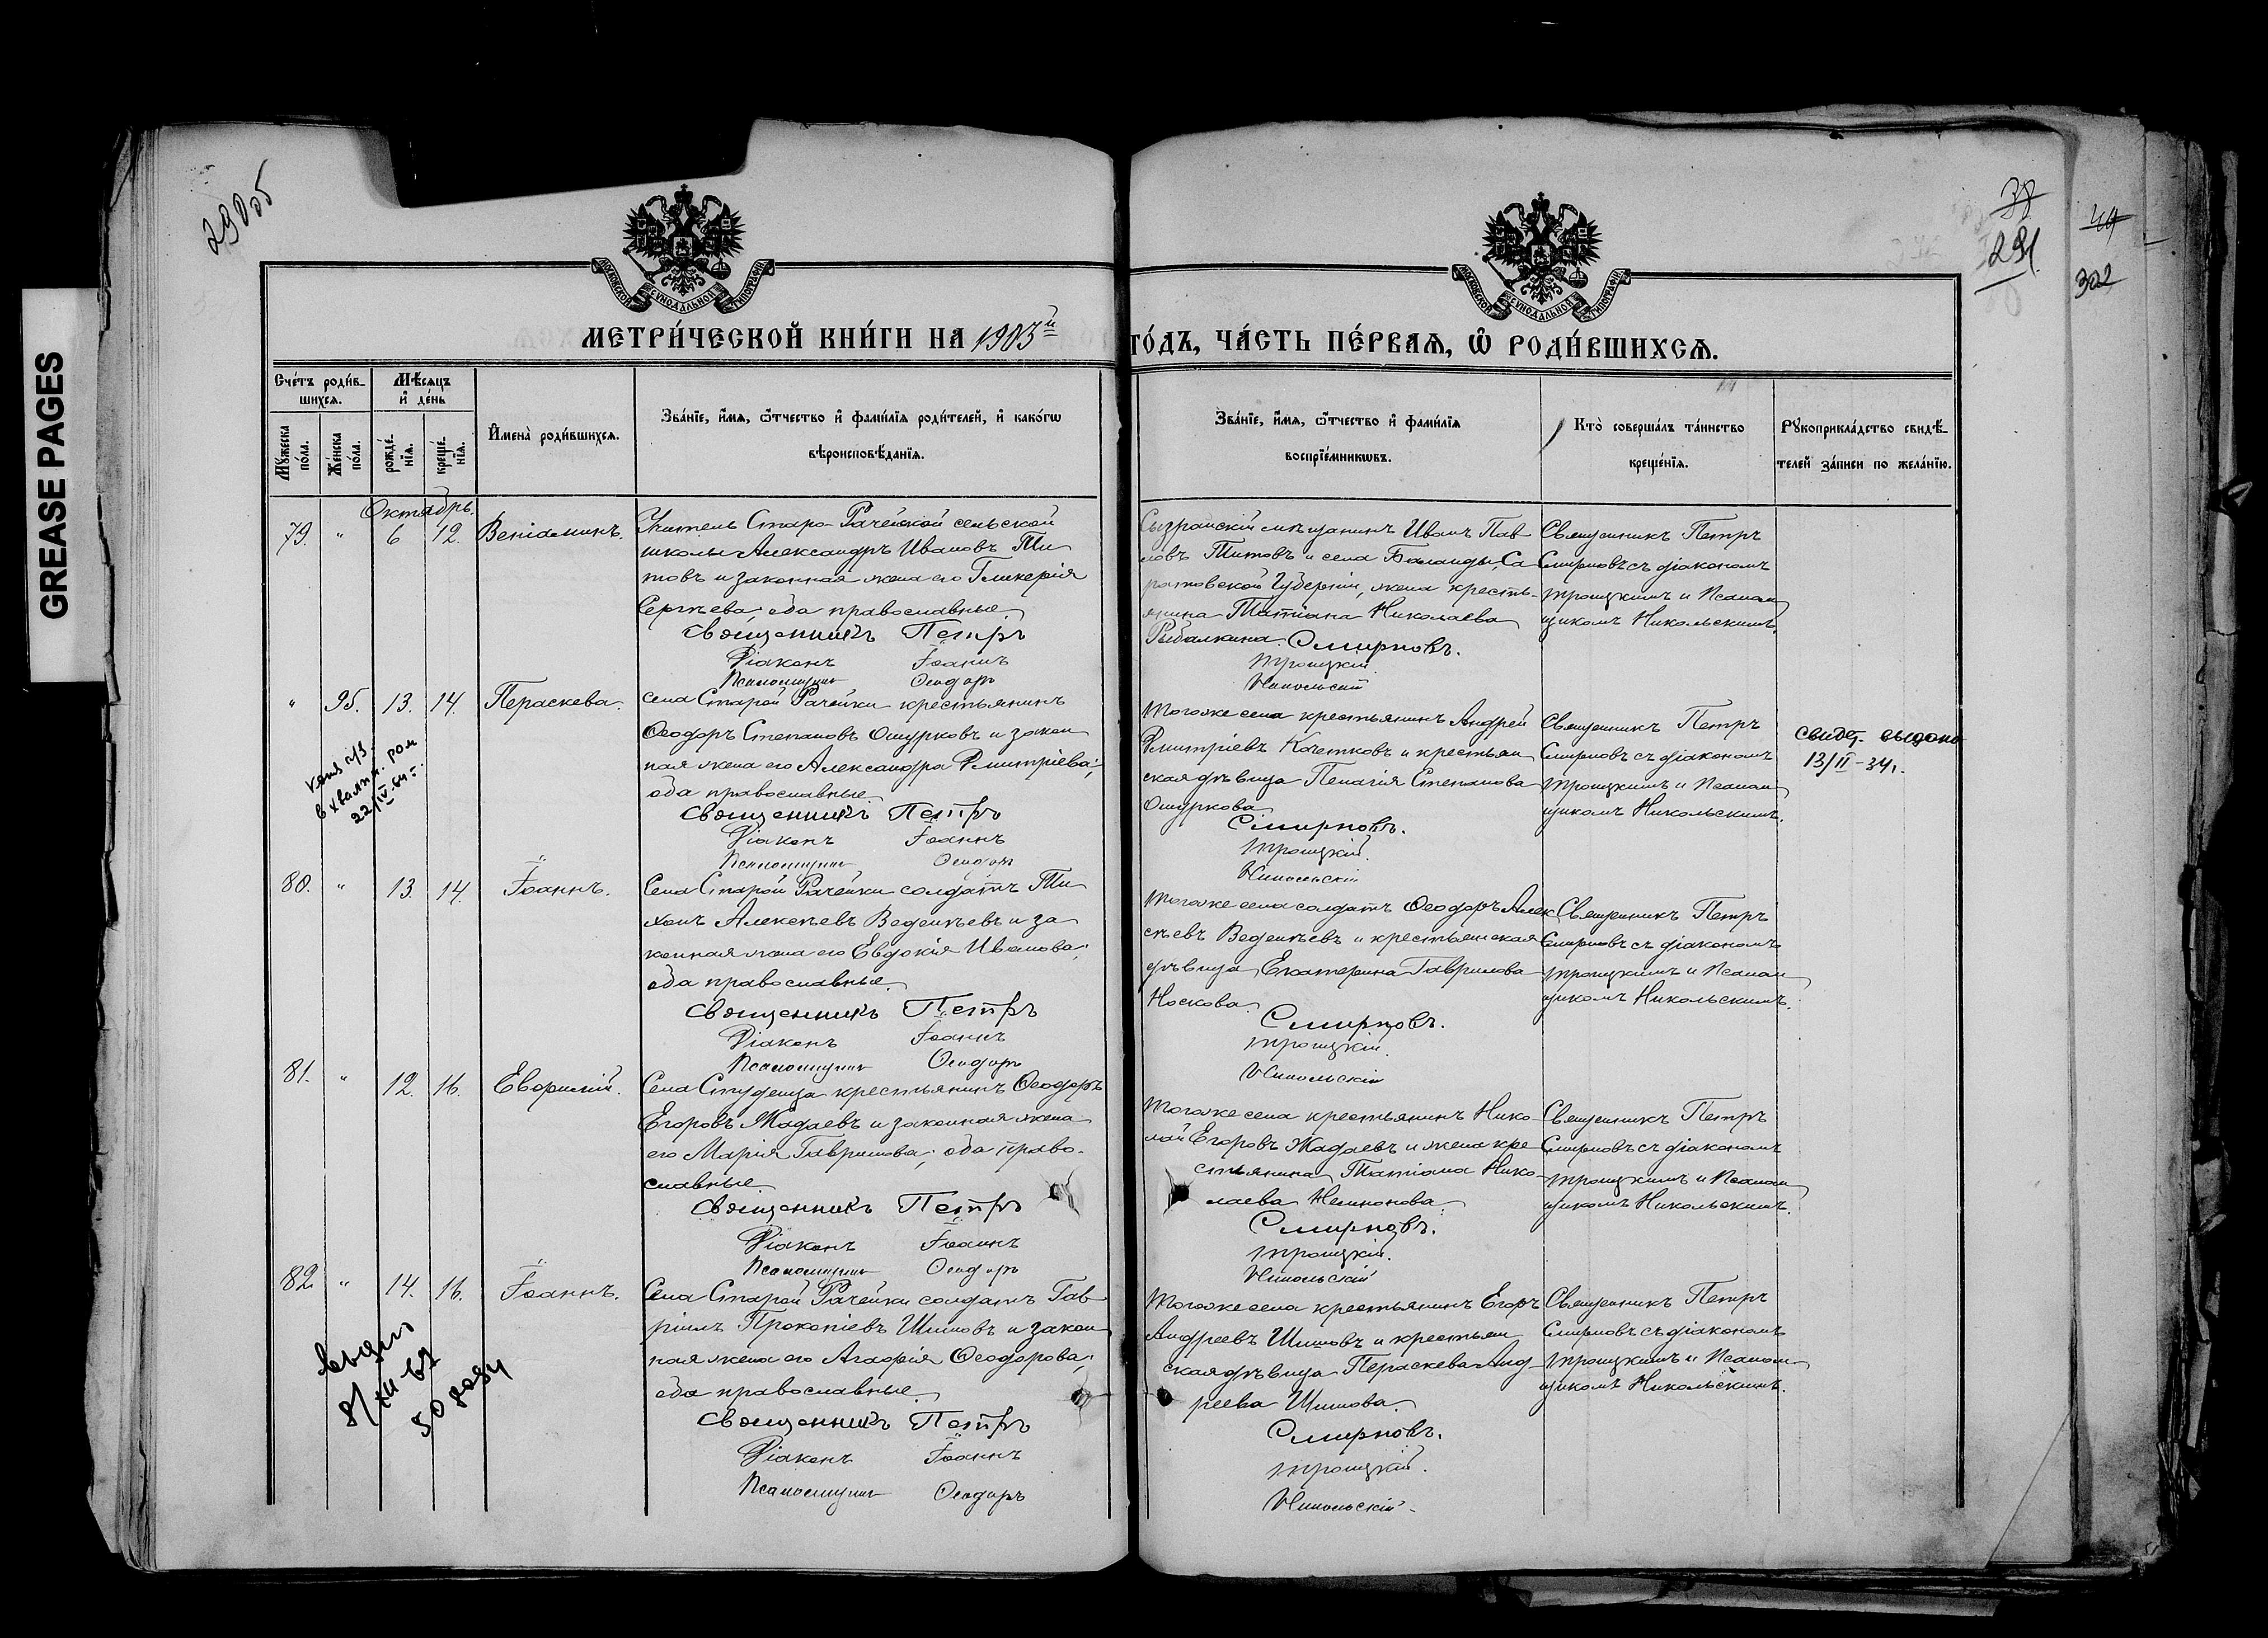 GREASE PAGES
290об
38
291.
44
302
МОСКОВСКОЙ СѴНОДАЛЬНОЙ ТИПОГРАФІИ
МОСКОВСКОЙ СѴНОДАЛЬНОЙ ТИПОГРАФІИ
МЕТРИ́ЧЕСКОЙ КНИ́ГИ НА 1903й
ГО́ДЪ, ЧА́СТЬ ПЕ́РВАѦ, Ѡ҆ РОДИ́ВШИХСѦ.
Сче́тъ роди́в-
шихсѧ.
Мѣ́сѧцъ
и҆ де́нь
Мꙋ́жеска по́ла.
Же́нска по́ла.
рожде́-нїѧ.
креще́-нїѧ.
И҆мена̀ роди́вшихсѧ.
Зва́нїе, и҆́мѧ, ѻ҆́тчество и҆ фамі́лїѧ роди́телей, и҆ како́гѡ
вѣроисповѣ́данїѧ.
Зва́нїе, и҆́мѧ, ѻ҆́тчество и҆ фамі́лїѧ
воспрїе́мникѡвъ.
Кто̀ соверша́лъ та́инство
креще́нїѧ.
Рꙋкоприкла́дство свидѣ́-
телей за́писи по жела́нїю.
Октябрь.
79. " 6 12. Веніаминъ.
Учитель Старо-Рачейской сельской
школы Александръ Ивановъ Ти
товъ и законная жена его Гликерія
Сергѣева; оба православные
Священникъ Петръ
Діаконъ Іоаннъ
Псаломщикъ Ѳеодоръ
Сызранскій мѣщанинъ Иванъ Пав
ловъ Титовъ и села Баланды, Са
ратовской Губерніи, жена кресть-
янина Татіана Николаева
Рыбалкина
Смирновъ.
Троицкій
Никольскій
Священникъ Петръ
Смирновъ съ діакономъ
Троицкимъ и Псалом
щикомъ Никольскимъ.
" 95. 13. 14. Параскева.
села Старой Рачейки крестьянинъ
Ѳеодоръ Степановъ Ошурковъ и закон
ная жена его Александра Димитріева;
оба православные
Священникъ Петръ
Діаконъ Іоаннъ
Псаломщикъ Ѳеодоръ
22/IV-64г.
Тогоже села крестьянинъ Андрей
Димитріевъ Кочетковъ и крестьян
ская дѣвица Пелагія Степанова
Ошуркова
Смирновъ.
Троицкій.
Никольскій
Священникъ Петръ
Смирновъ съ діакономъ
Троицкимъ и Псалом
щикомъ Никольскимъ.
свидет. выдано
13/II-34г.
80. " 13. 14. Іоаннъ.
Села Старой Рачейки солдатъ Ти
хонъ Алексѣевъ Веденѣевъ и за
конная жена его Евдокія Иванова;
оба православные
Священникъ Петръ
Діаконъ Іоаннъ
Псаломщикъ Ѳеодоръ
Тогоже села солдатъ Ѳеодоръ Алек
сѣевъ Веденѣевъ и крестьянская
дѣвица Екатерина Гаврилова
Носкова
Смирновъ.
Троицкій.
Никольскій
Священникъ Петръ
Смирновъ съ діакономъ
Троицкимъ и Псалом
щикомъ Никольскимъ.
81. " 12. 16. Евѳимій.
Села Студенца крестьянинъ Ѳеодоръ
Егоровъ Жадаевъ и законная жена
его Марія Гаврилова; оба право-
славные
Священникъ Петръ
Діаконъ Іоаннъ
Псаломщикъ Ѳеодоръ
Тогоже села крестьянинъ Нико-
лай Егоровъ Жадаевъ и жена кре
стьянина Татіана Нико-
лаева
Смирновъ.
Троицкій.
Никольскій
Священникъ Петръ
Смирновъ съ діакономъ
Троицкимъ и Псалом
щикомъ Никольскимъ.
82. " 14. 16. Іоаннъ.
Села Старой Рачейки солдатъ Гав
ріилъ Прокопіевъ Шишовъ и закон
ная жена его Агафія Ѳеодорова;
оба православные
Священникъ Петръ
Діаконъ Іоаннъ
Псаломщикъ Ѳеодоръ
8/XII-67
Тогоже села крестьянинъ Егоръ
Андреевъ Шишовъ и крестьян
ская дѣвица Параскева Анд-
реева Шишова.
Смирновъ.
Троицкій.
Никольскій
Священникъ Петръ
Смирновъ съ діакономъ
Троицкимъ и Псалом
щикомъ Никольскимъ.